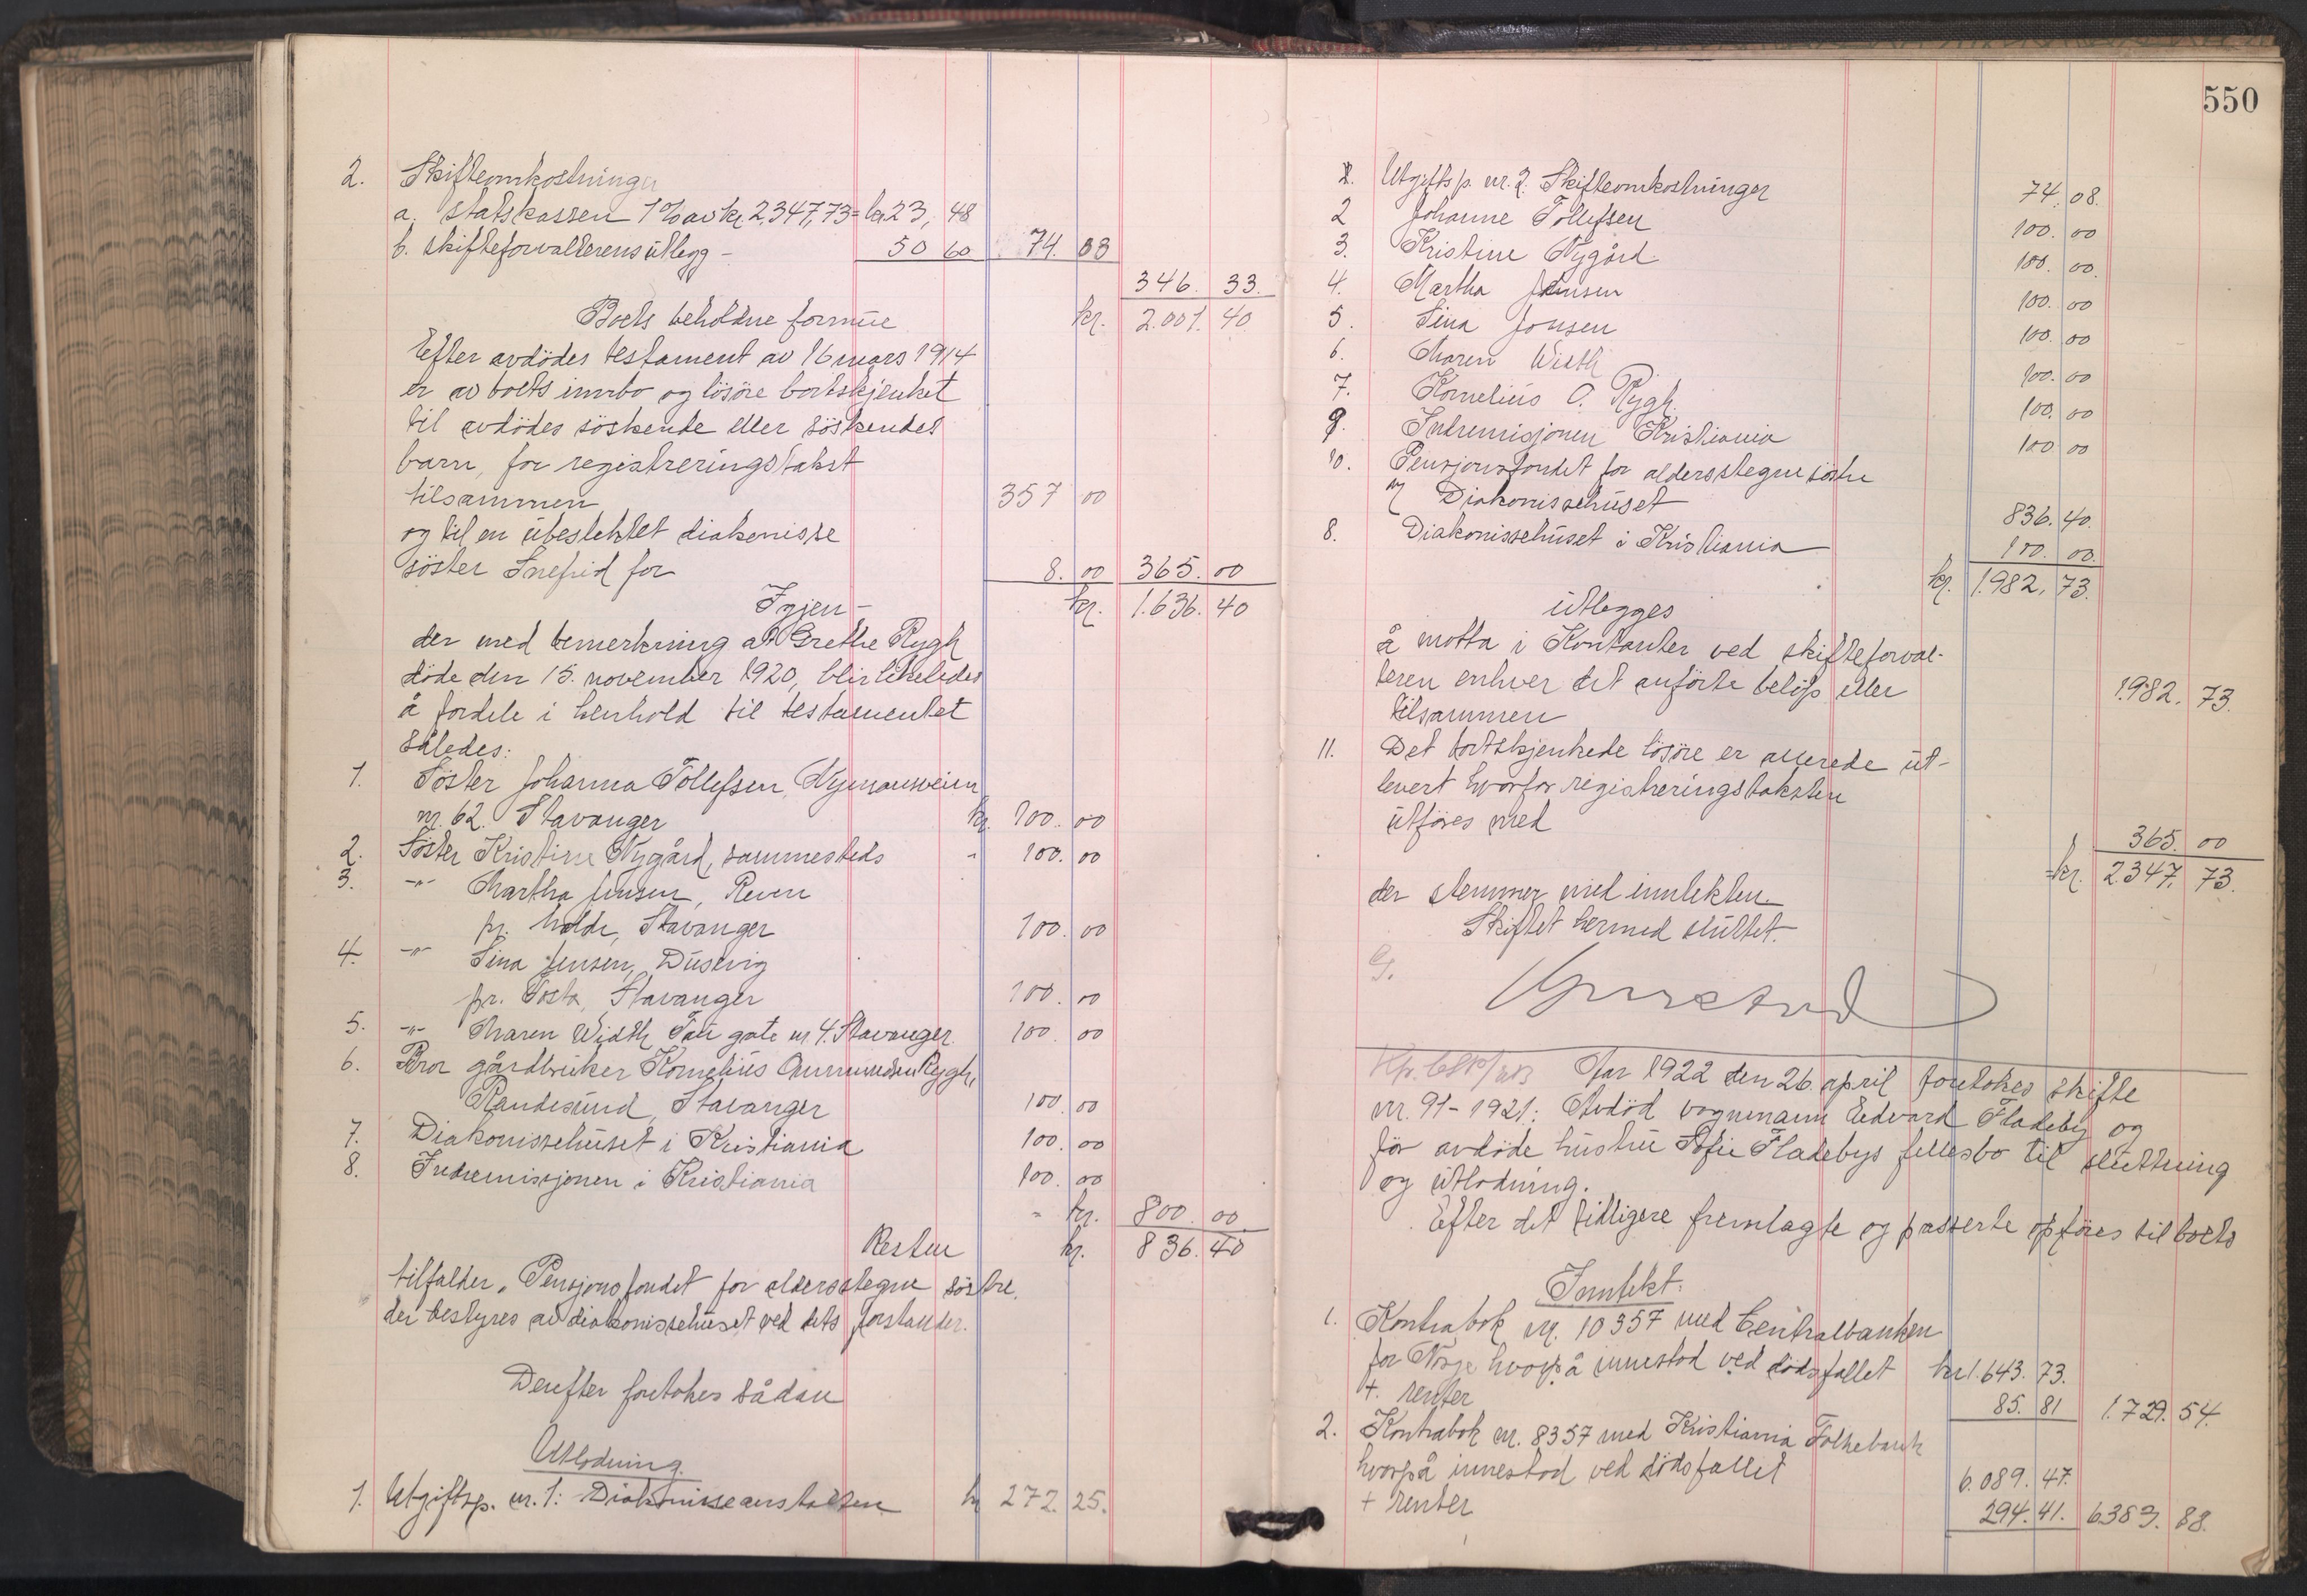 2. Skifteomkostninger
a. statskassen 1% av kr. 2.347,73 = kr. 23, 48
b. skifteforvalterens utlegg - 50 60 74. 08
346. 33.
Boets beholdne formue kr. 2.001. 40
Efter avdödes testament av 16 mars 1914
er av boets innbo og lösöre bortskjenket
til avdödes söskende eller söskendes
barn, for registreringstakst
tilsammen 357 00
og til en ubeslektet diakonisse
söster Snefrid for 8. 00 365. 00
Igjen - kr. 1.636. 40
der med bemerkning at Grethe Rygh
döde den 15. november 1920, blir likeledes
å fordele i henhold til testamentet
således:
1. Söster Johanna Tollefsen, Nymansveien
nr. 62. Stavanger kr. 100. 00
2. Söster Kristine Nygård, sammesteds - 100. 00
3. -"- Martha Jensen, Reven
pr. Halde, Stavanger 100. 00
4. -"- Sina Jensen, Dusevig
pr. Tosta, Stavanger 100. 00
5. -"- Maren Width, Tau gate nr. 4. Stavanger. 100. 00
6. Bror gårdbruker Kornelius Ommundsen Rygh,
Randesund, Stavanger 100. 00
7. Diakonissehuset i Kristiania 100. 00
8. Indremisjonen i Kristiania 100. 00
- kr. 800. 00
Resten kr. 836. 40
tilfalder "Pensjonsfondet for alderstegne söstre,
der bestyres av diakonissehuset ved dets forstander.
Derefter foretokes sådan
Utlodning.
1. Utgiftsp. nr. 1: Diakonisseanstalten kr 272. 25.
550
2. Utgiftsp. nr. 2. Skifteomkostninger 74. 08.
2 Johanne Tollefsen 100. 00
3. Kristine Nygård 100. 00.
4. Martha Jensen 100. 00
5. Sina Jonsen 100. 00
6. Maren Width 100. 00
7. Kornelius O. Rygh 100. 00
9. Indremisjonen Kristiania 100 00
10. Pensjonsfondet for alderstegne söstre
v/ Diakonissehuset 836. 40.
8. Diakonissehuset i Kristiania 100. 00.
kr. 1.982, 73.
utlegges
å motta i Kontanter ved skifteforval-
teren enhver det anförte belöp eller
tilsammen 1.982. 73.
11. Det bortskjenkede lösöre er allerede ut-
levert hvorfor registreringstaksten
utföres med 365. 00
=kr. 2.347. 73.
der stemmer med inntekten.
Skiftet hermed sluttet.
G.
År 1922 den 26. april foretokes skifte
nr. 91-1921: Avdöd vognmann Edvard Fladeby og
för avdöde hustru Sofie Fladebys fellesbo til slutning
og utlodning.
Efter det tidligere fremlagte og passerte opföres til boets
Inntekt:
1. Kontrabok nr. 10357 med Centralbanken
for Norge hvorpå innestod ved dödsfallet kr 1.643. 73.
+ renter 85. 81 1.729. 54.
2. Kontrabok nr. 8357 med Kristiania Folkebank
hvorpå innestod ved dödsfallet 6.089. 47.
+ renter 294. 41. 6.383. 88.